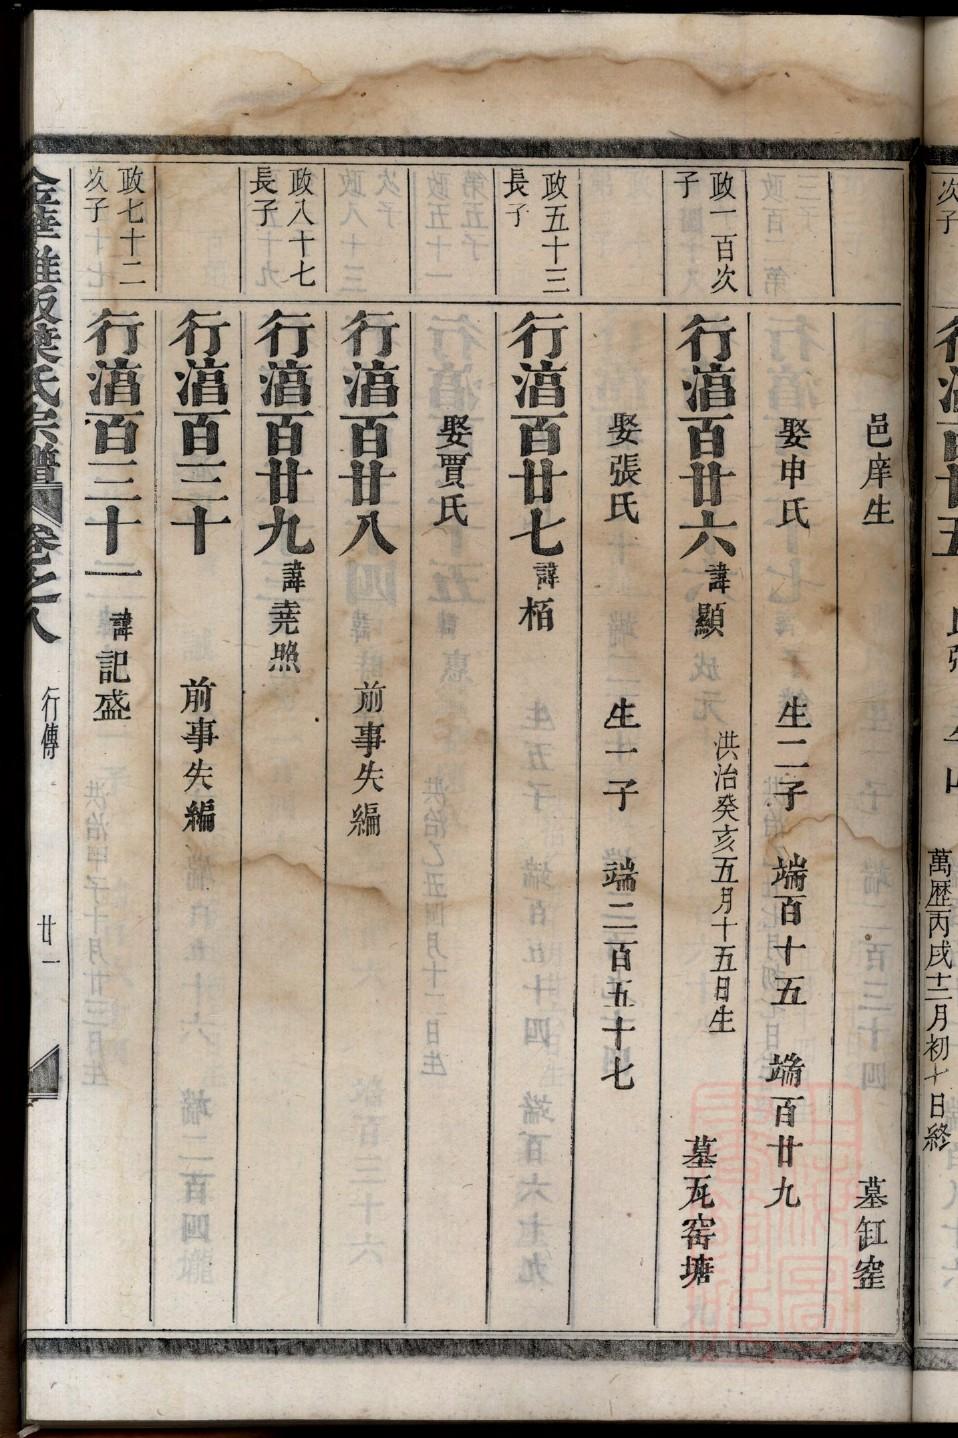 次子
萬歷丙戌十二月初十日終
邑庠生
墓缸窐
娶申氏
生二子
端百十五
端百廿九
政一百次子
行湻百廿六
諱顯
洪治癸亥五月十五日生
墓瓦窑塘
娶張氏
生一子
端二百五十七
政五十三長子
行湻百廿七
諱栢
娶賈氏
行湻百廿八
前事失編
政八十七長子
行湻百廿九
諱堯煦
行湻百三十
前事失編
政七十二次子
行湻百三十一
諱記盛
葉氏宗譜
卷之八
行傳
廿一